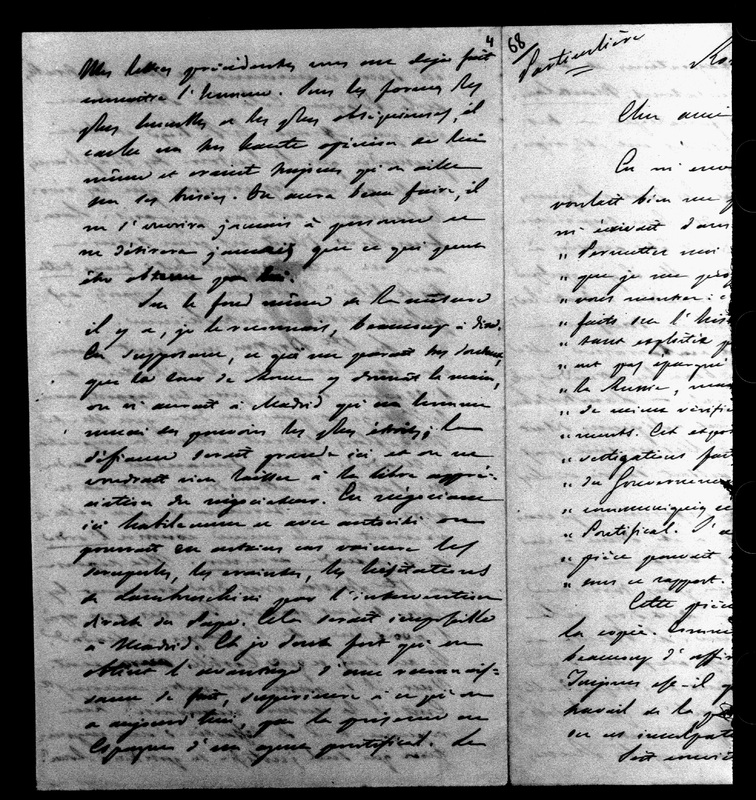 4
Mes lettres précédentes vous ont déjà fait
connaître l'homme. Sous les formes les
plus humbles et les plus obséquieuses, il
cache une très haute opinion de lui
même et craint toujours qu'on aille
sur ses brisées. On aura beau faire, il
ne s'ouvrira jamais à personne et
ne désirera jamais que ce qui peut
être obtenu par lui.
Sur le fond même de la mesure
il y a, je le reconnais, beaucoup à dire.
En supposant, ce qui me paraît très douteux,
que la Cour de Rome y donnât la main,
on n'aurait à Madrid qu'un homme
muni de pouvoirs les plus étroits; la
défiance serait grande ici et on ne
voudrait rien laisser à la libre appré-
ciation du négociateur. En négociant
ici habilement et avec autorité on
pourrait en certains cas vaincre les
scrupules, les craintes, les hésitations
de Lambruschini par l'intervention
directe du Pape. Cela serait impossible
à Madrid. Et je doute fort qu'on
obtînt l'avantage d'une reconnais-
sance de fait, supérieure à ce qu'on
a aujourd'hui, par la présence en
Espagne d'un agent pontifical. Le
68
Particulière
Cher ami
On m'
voulait bien me
m'écrivait dans
" Permettez moi
" que je me
" vous
" faits sur l'
" sont
" ont pas épargné
" la Russie,
" de mieux
" ments. Cet
" vestigations
" du Gouvernement
" communiquer
" Pontifical.
" pièce pouvait
" sous ce rapport.
Cette pièce
la copie.
beaucoup d'
Toujours est-il
travail de la
ou
Soit